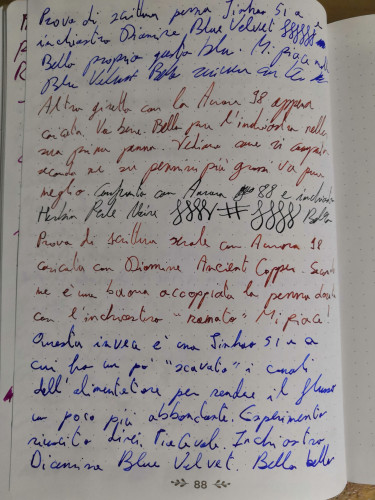 Prova di scrittura penna Jinhao 51 a
inchiostro Diamine Blue Velvet
Bello proprio questo blu. Mi piace
Blue Velvet Bello scrivere con
Altro giretto con la Aurora 98 appena
caricata. Va bene. Bello pure l'inchiostro nella
sua prima penna. Vediamo come si comporta
secondo me su pennini più grossi va pure
meglio. Confronto con Aurora 88 e inchiostro
Herbin Perle Noire # Bello
Prova di scrittura serale con Aurora 98
caricata con Diamine Ancient Copper. Secondo
me è una buona accoppiata la penna dorata
con l'inchiostro "ramato" Mi piace!
Questa invece è una Jinhao 51 a
cui ho un po' "scavato" i canali
dell'alimentatore per rendere il flusso
un poco più abbondante. Esperimento
riuscito direi. Piacevole. Inchiostro
Diamine Blue Velvet. Bello bello
88